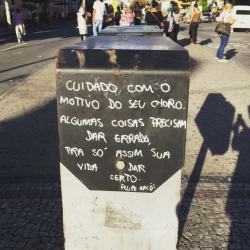 CUIDADO, COM O
MOTIVO DO SEU CHORO.
ALGUMAS COISAS PRECISAM
DAR ERRADO,
PRA SÓ ASSIM SUA
VIDA DAR
CERTO.